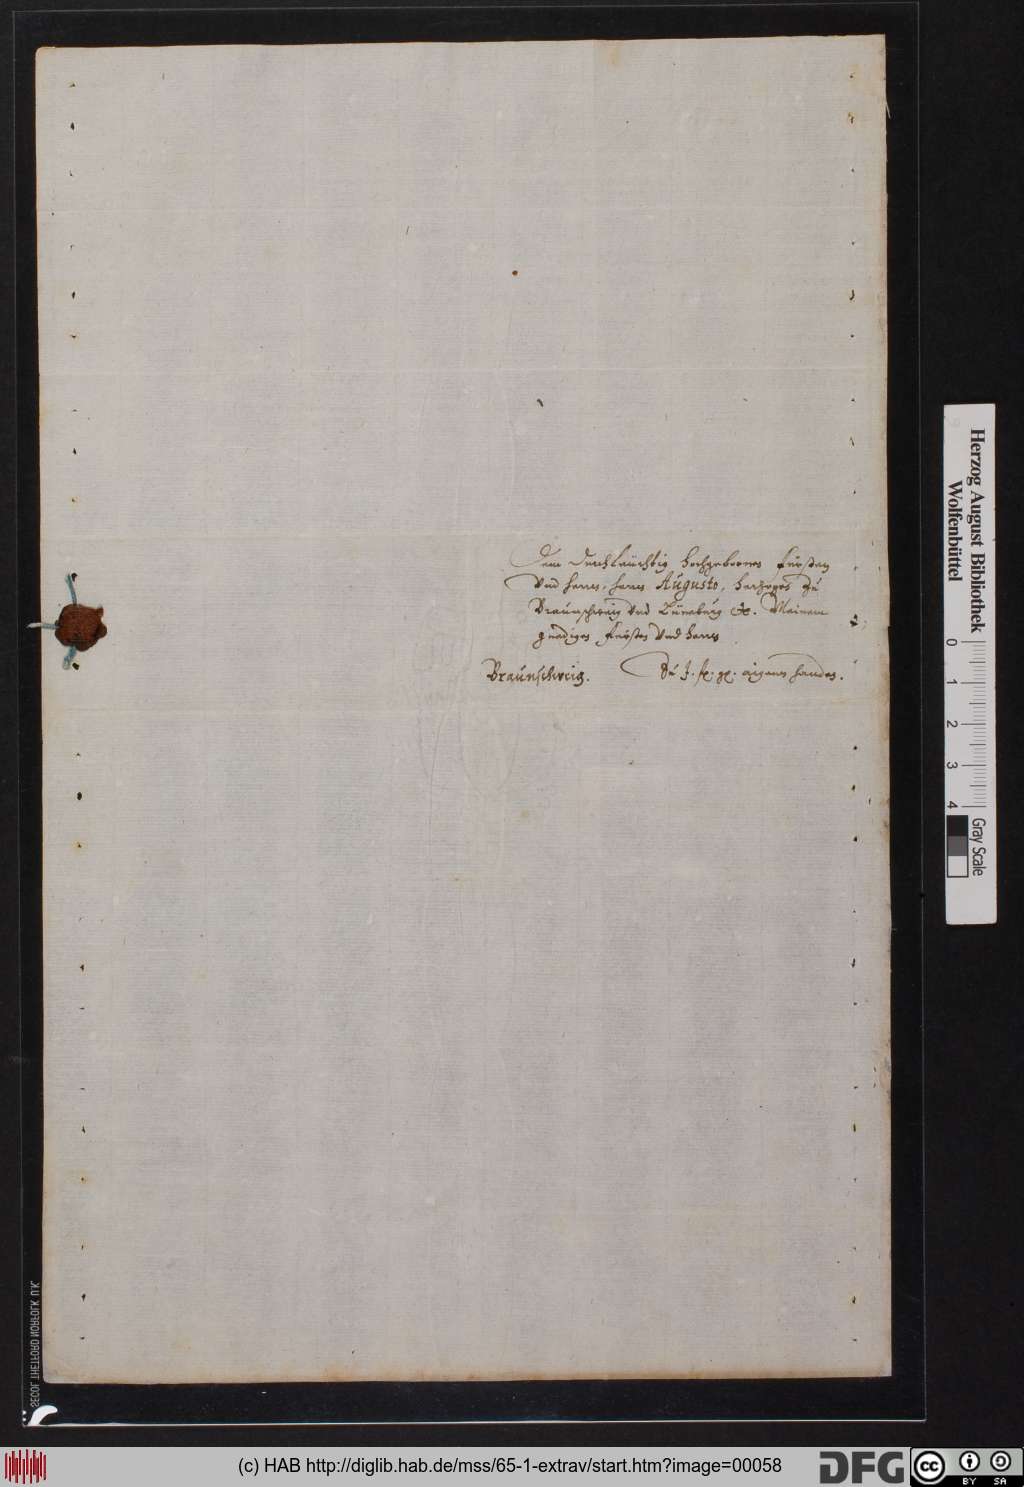 Dem Durchläuchtig Hochgebornen Fürsten
Vnd Herrn, Herrn Augusto, Hertzogen zu
Braunschweig Vnd Lüneburg etc. Meinem
gnedigen Fürsten Vnd Herrn
Braunschweig. Zu J. fr. gl. aigenen handen.
Herzog August Bibliothek
Wolfenbüttel
0 1 2 3 4
Gray Scale
SECOL THETFORD NORFOLK U.K.
(c) HAB http://diglib.hab.de/mss/65-1-extrav/start.htm?image=00058
DFG
cc
BY SA